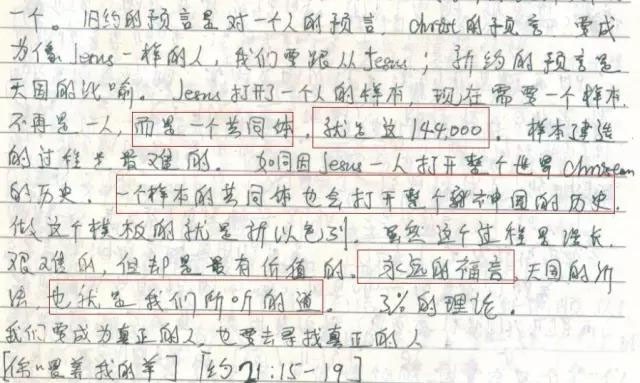 一个。旧约的预言是对一个人的预言, christ的预言 要成
为像Jesus一样的人, 我们要跟从Jesus; 新约的预言是
天国的比喻。 Jesus打开了一个人的样本, 现在需要一个样本,
不再是一人, 而是一个共同体, 就是这144,000。 样本建造
的过程是最难的。 如同因Jesus一人打开整个世界Christean
的历史, 一个样本的共同体也会打开整个新中国的历史,
做这个模板的就是新以色列。 虽然这个过程是漫长,
艰难的, 但却是最有价值的。 永远的福音, 天国的
法 也就是我们所听的道。 3%的理论。
我们要成为真正的人, 也要去寻找真正的人
[你喂养我的羊] [约21:15-19]